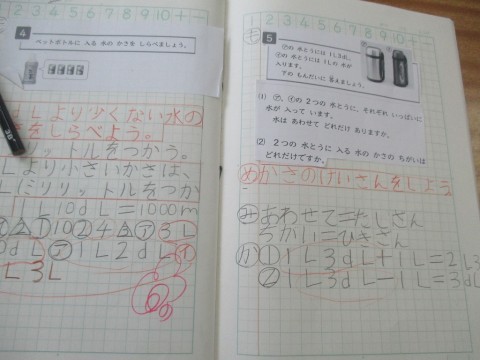 1 2 3 4 5 6 7 8 9 10
4
ペットボトルに 入る 水の かさを しらべましょう。
dLより少くない水の
をしらべよう。
ットルをつかう。
Lより小さいかさは、
ミリリットルをつか
1L10dL=1000m
3L
0dL ㋐1L2dL ㋑
L3L
1 2 3 4 5 6 7 8 9 10
も
5
㋐の 水とうには 1L3dL、
㋑の 水とうには 1Lの 水が
入ります。
下の もんだいに 答えましょう。
(1) ㋐、㋑の 2つの 水とうに、それぞれ いっぱいに
水が 入って います。
水は あわせて どれだけ ありますか。
(2) 2つの 水とうに 入る 水の かさの ちがいは
どれだけですか。
めかさのけいさんをしよう
みあわせて=たしさん
ちがい=ひきさん
か①1L3dL+1L=2L3
②1L3dL-1L=3dL